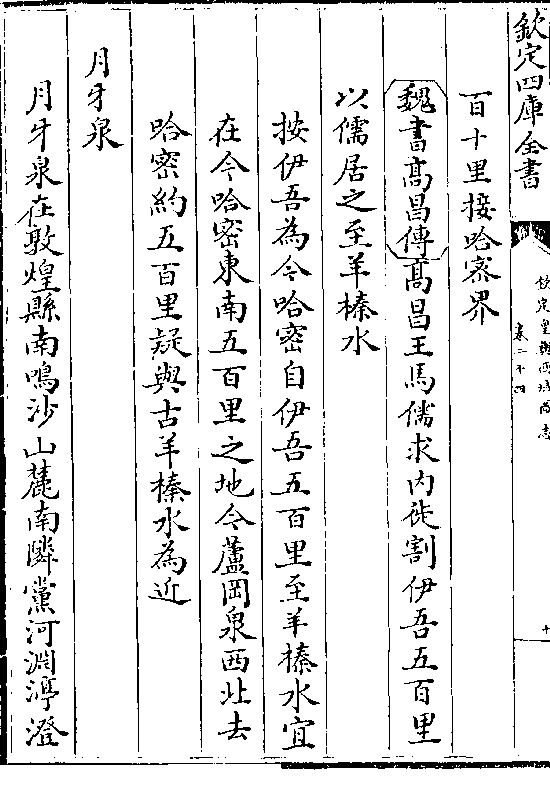 欽定四庫全書
欽定皇輿西域圖志
卷二十四
十
百十里接哈密界
魏書髙昌傳髙昌王馬儒求内徙割伊吾五百里
以儒居之至羊榛水
按伊吾為今哈密自伊吾五百里至羊榛水宜
在今哈密東南五百里之地今蘆岡泉西北去
哈密約五百里疑與古羊榛水為近
月牙泉
月牙泉在敦煌縣南鳴沙山麓南隣黨河淵渟澄